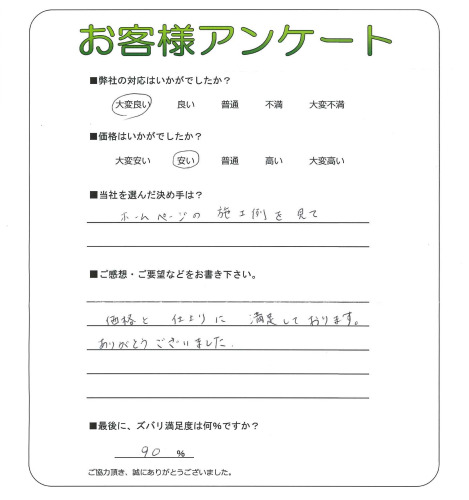 お客様アンケート
■弊社の対応はいかがでしたか?
大変良い 良い 普通 不満 大変不満
■価格はいかがでしたか?
大変安い 安い 普通 高い 大変高い
■当社を選んだ決め手は?
ホームページの施工例を見て
■ご感想・ご要望などをお書き下さい。
価格と仕上りに満足しております。
ありがとうございました.
■最後に、ズバリ満足度は何%ですか?
90 %
ご協力頂き、誠にありがとうございました。